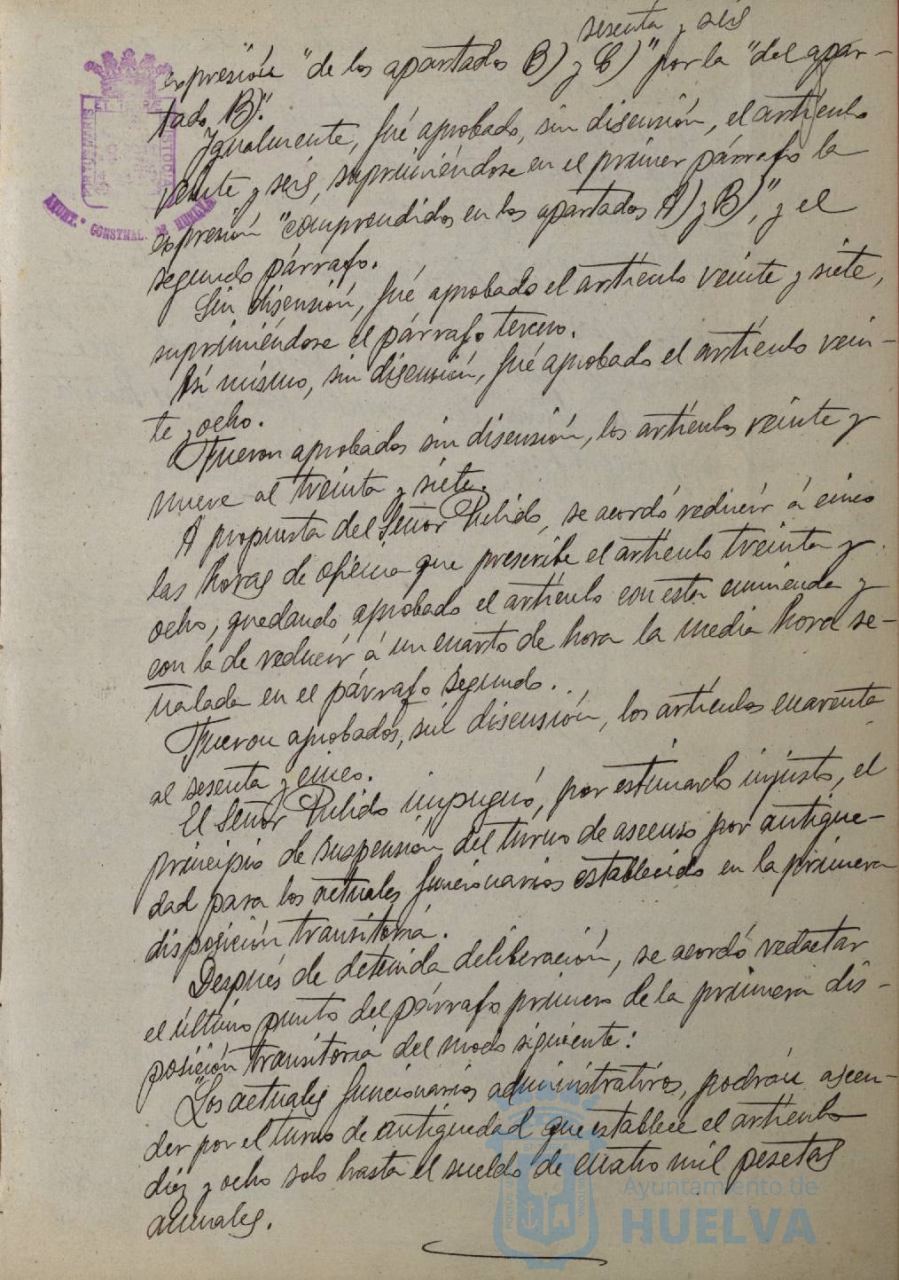 sesenta y seis
expresión "de los apartados B) y C)" por la "del apar-
tado B)."
Igualmente, fué aprobado, sin discusión, el artículo
veinte y seis, suprimiéndose en el primer párrafo la
expresión "comprendidos en los apartados A) y B)", y el
segundo párrafo.
Sin discusión, fué aprobado el artículo veinte y siete,
suprimiéndose el párrafo tercero.
Así mismo, sin discusión, fué aprobado el artículo vein-
te y ocho.
Fueron aprobados sin discusión, los artículos veinte y
nueve al treinta y siete.
A propuesta del Señor Pulido, se acordó reducir á cinco
las horas de oficina que prescribe el artículo treinta y
ocho, quedando aprobado el artículo con esta enmienda y
con la de reducir á un cuarto de hora la media hora se-
ñalada en el párrafo segundo.
Fueron aprobados, sin discusión, los artículos cuarenta
al sesenta y cinco.
El Señor Pulido impugnó, por estimarlo injusto, el
principio de suspensión del turno de ascenso por antigüe-
dad para los actuales funcionarios establecido en la primera
disposición transitoria.
Después de detenida deliberación, se acordó redactar
el último punto del párrafo primero de la primera dis-
posición transitoria del modo siguiente:
"Los actuales funcionarios administrativos, podrán ascen-
der por el turno de antigüedad que establece el artículo
diez y ocho solo hasta el sueldo de cuatro mil pesetas
anuales.
AYUNT. CONSTNAL. DE HUELVA
Ayuntamiento de
HUELVA